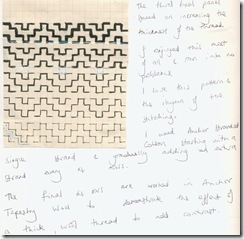 The third trial panel
based on increasing the
thickness of the thread
I enjoyed this most
of all & ran into no
problems.
I love this pattern &
the rhythm of the
stitching.
I used Anchor Stranded
Cotton starting with a
Single Strand & gradually adding an extra
Strand every rows.
The final rows are worked in Anchor
Tapestry Wool to demonstrate the effect of
a thick, wool thread to add contrast.